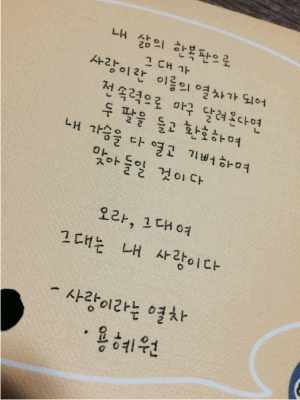 내 삶의 한복판으로
그대가
사랑이란 이름의 열차가 되어
전속력으로 마구 달려온다면
두 팔을 들고 환호하며
내 가슴을 다 열고 기뻐하며
맞아들일 것이다
오라, 그대여
그대는 내 사랑이다
- 사랑이라는 열차
· 용혜원